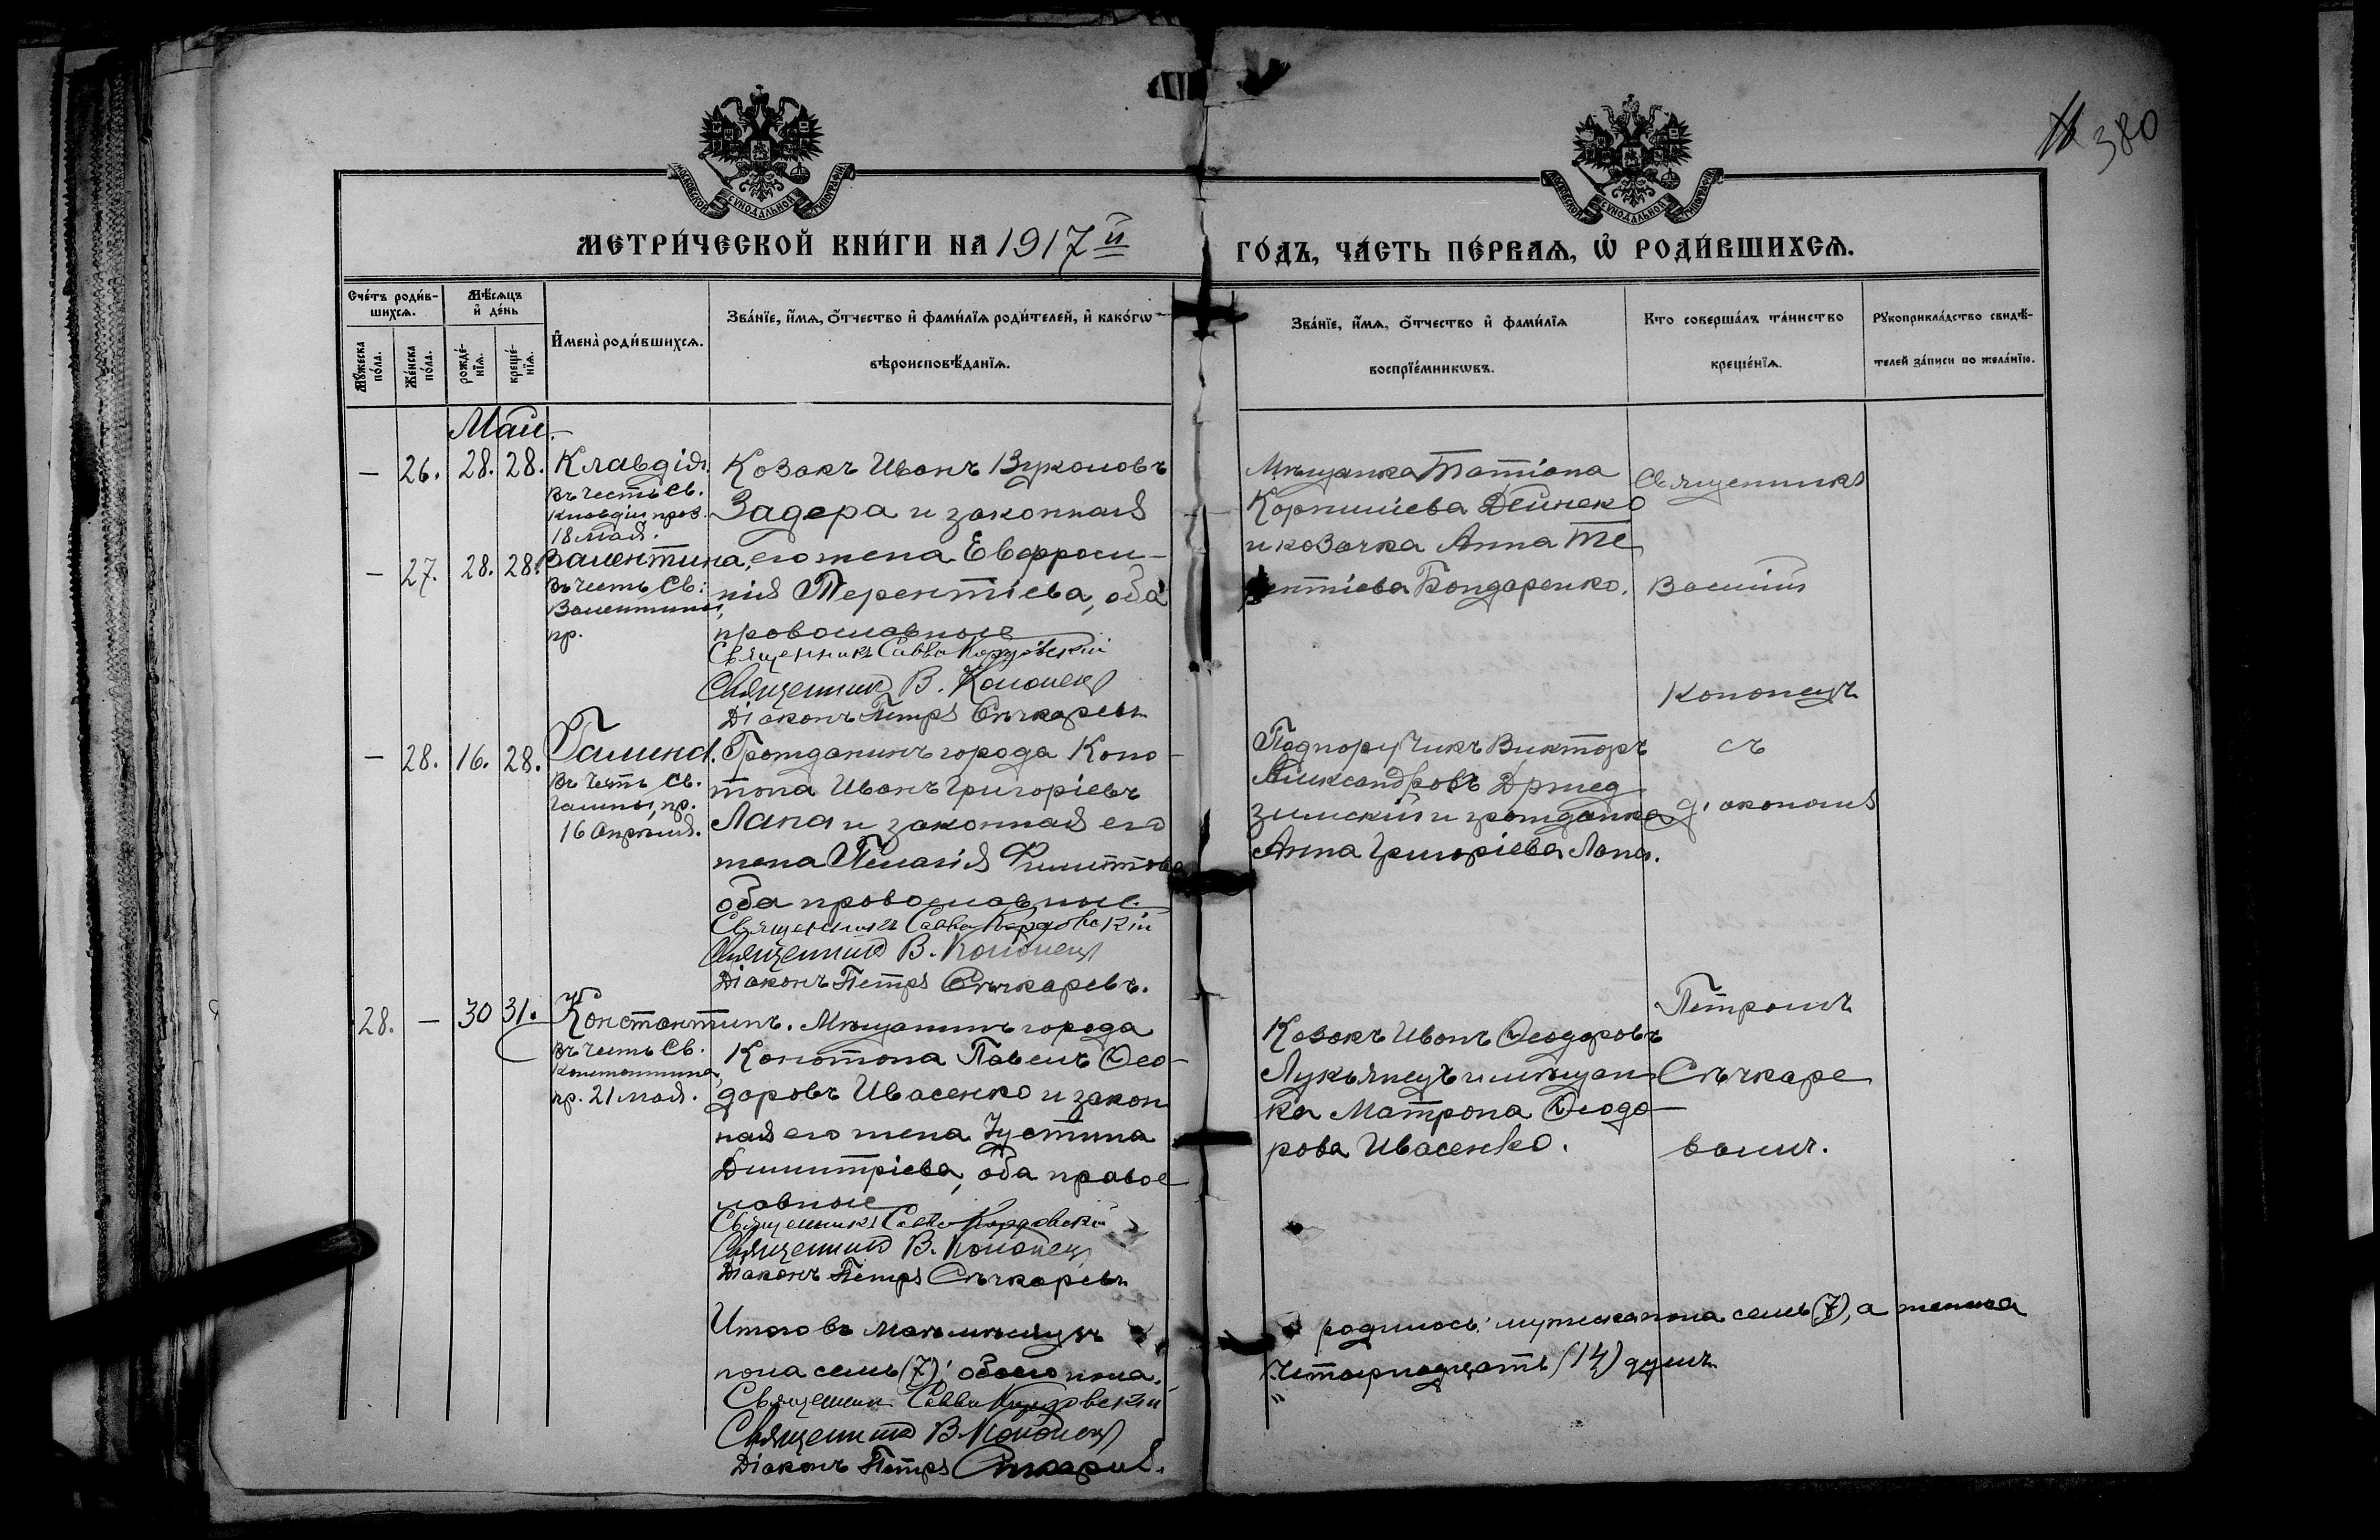 380
МОСКОВСКОЙ СѴНОДАЛЬНОЙ ТИПОГРАФІИ
МОСКОВСКОЙ СѴНОДАЛЬНОЙ ТИПОГРАФІИ
МЕТРИ́ЧЕСКОЙ КНИ́ГИ НА 1917й
ГО́ДЪ, ЧА́СТЬ ПЕ́РВАѦ, Ѡ҆ РОДИ́ВШИХСѦ.
Сче́тъ роди́в-
шихсѧ.
Мѣ́сѧцъ
и҆ де́нь
Мꙋ́жеска
по́ла.
Же́нска
по́ла.
рожде́-
нїѧ.
креще́-
нїѧ.
И҆мена̀ роди́вшихсѧ.
Зва́нїе, и҆́мѧ, ѻ҆́тчество и҆ фами́лїѧ роди́телей, и҆ како́гѡ
вѣроисповѣ́данїѧ.
Зва́нїе, и҆́мѧ, ѻ҆́тчество и҆ фами́лїѧ
воспрїе́мникѡвъ.
Кто соверша́лъ та́инство
креще́нїѧ.
Рꙋкоприкла́дство свидѣ́-
телей за́писи по жела́нїю.
Май.
— 26. 28. 28. Клавдія.
въ честь св.
Клавдіи праз.
18 мая.
Козакъ Иванъ Вуколовъ
Задера и законная
его жена Евфроси-
нія Терентіева, оба
православные
Священникъ Савва Кордовскій
Священникъ В. Кононец
Діаконъ Петръ Сѣчкаревъ
Мѣщанка Татіана
Корниліева Дейнеко
и козачка Анна Те
ентіева Бондаренко.
— 27. 28. 28. Валентина,
въ честь св.
Валентины,
пр.
Священникъ
Василій
Кононецъ
съ
діакономъ
Петромъ
Сѣчкаре
вымъ.
— 28. 16. 28. Галина.
въ честь св.
Галины, пр.
16 апрѣля.
Гражданинъ города Коно-
топа Иванъ Григоріевъ
Лапа и законная его
жена Пелагія Филиппова
оба православные.
Священникъ Савва Кордовскій
Священникъ В. Кононец
Діаконъ Петръ Сѣчкаревъ.
Подпоручикъ Викторъ
Александровъ
и гражданка
Анна Григоріева Лапа.
28. — 30 31. Константинъ.
въ честь св.
Константина,
пр. 21 мая.
Мѣщанинъ города
Конотопа Павелъ Ѳео-
доровъ Ивасенко и закон
ная его жена Іустина
Димитріева, оба правос
лавные
Священникъ Савва Кордовскій
Священникъ В. Кононец
Діаконъ Петръ Сѣчкаревъ
Козакъ Иванъ Ѳеодоровъ
Лукьянецъ и мѣщан
ка Матрона Ѳеодо-
рова Ивасенко.
Итого въ маѣ мѣсяцѣ родилось: мужеска пола семь (7), а женска
пола семь (7); обоего пола четырнадцать (14) душъ.
Священник Савва Кордовскій
Священникъ В. Кононец
Діаконъ Петръ Сѣчкаревъ.